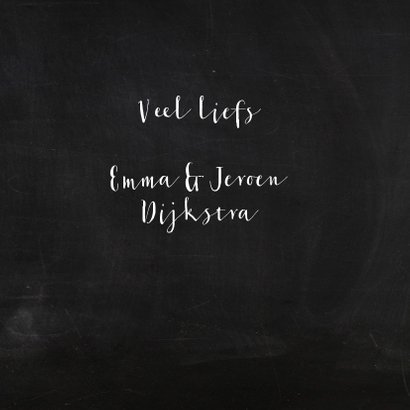 Veel liefs
Emma & Jeroen
Dijkstra